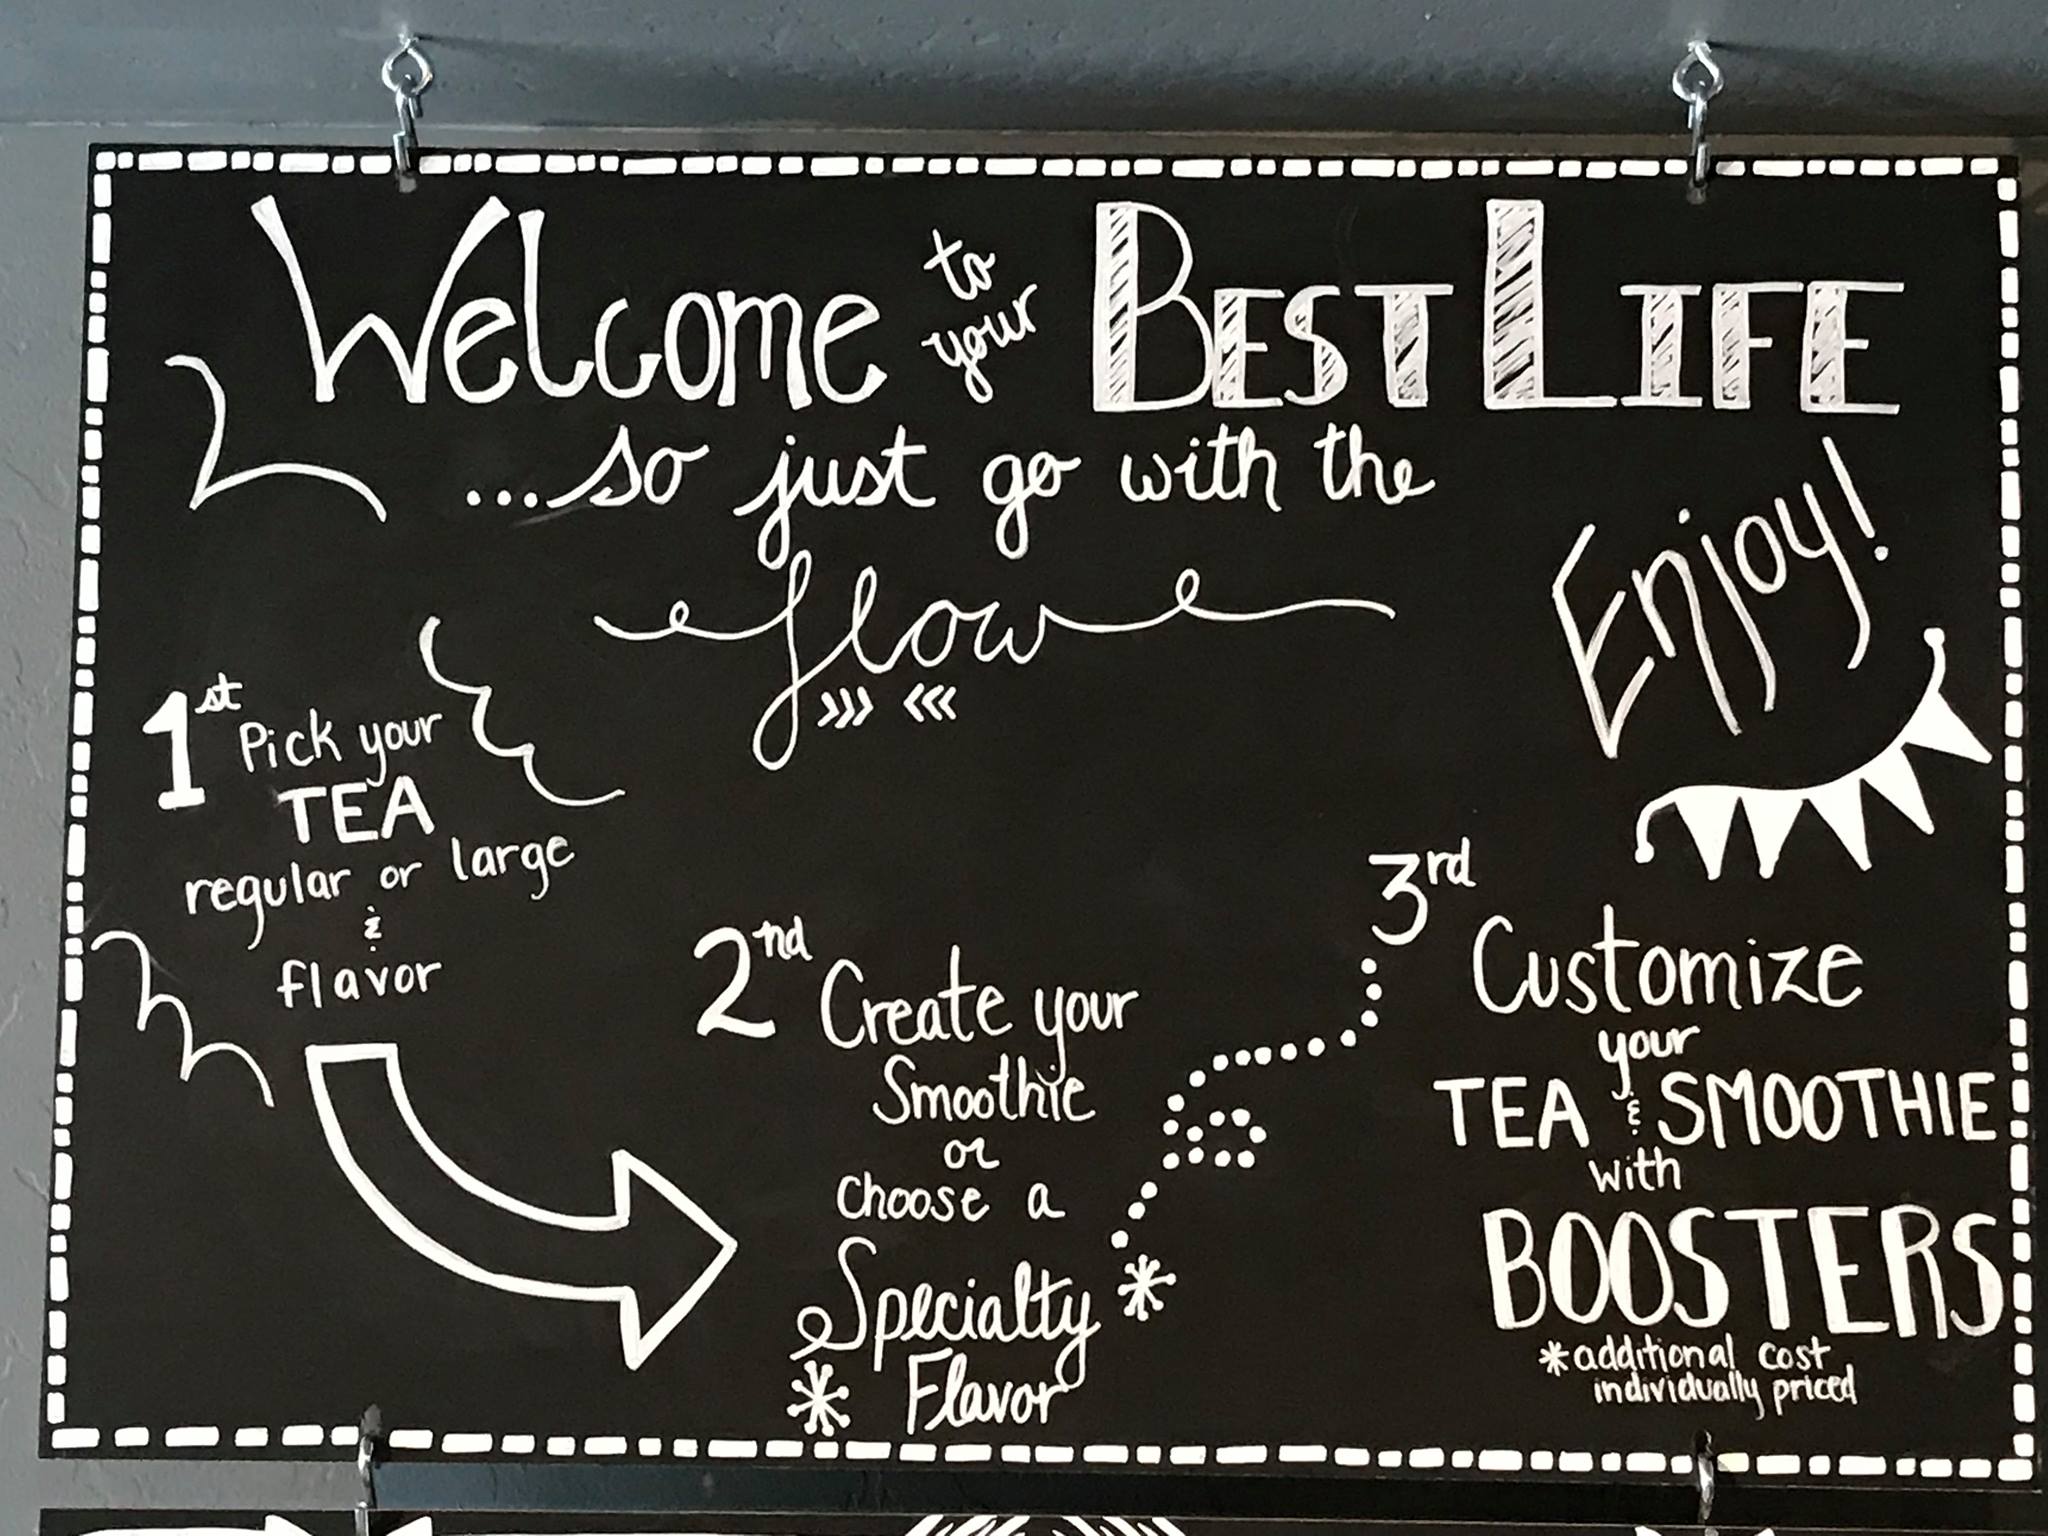 Welcome to your BEST LIFE
...so just go with the
flow
>>> <<<
Enjoy!
1st Pick your
TEA
regular or large
&
flavor
2nd Create your
Smoothie
or
choose a
Specialty
Flavor
3rd
Customize
your
TEA & SMOOTHIE
with
BOOSTERS
*additional cost
individually priced